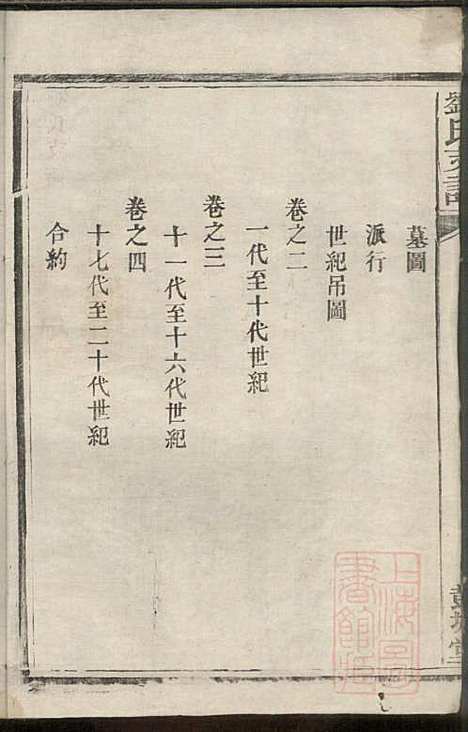 劉氏支譜
墓圖
派行
世紀吊圖
卷之二
一代至十代世紀
卷之三
十一代至十六代世紀
卷之四
十七代至二十代世紀
合約
上海圖書館藏